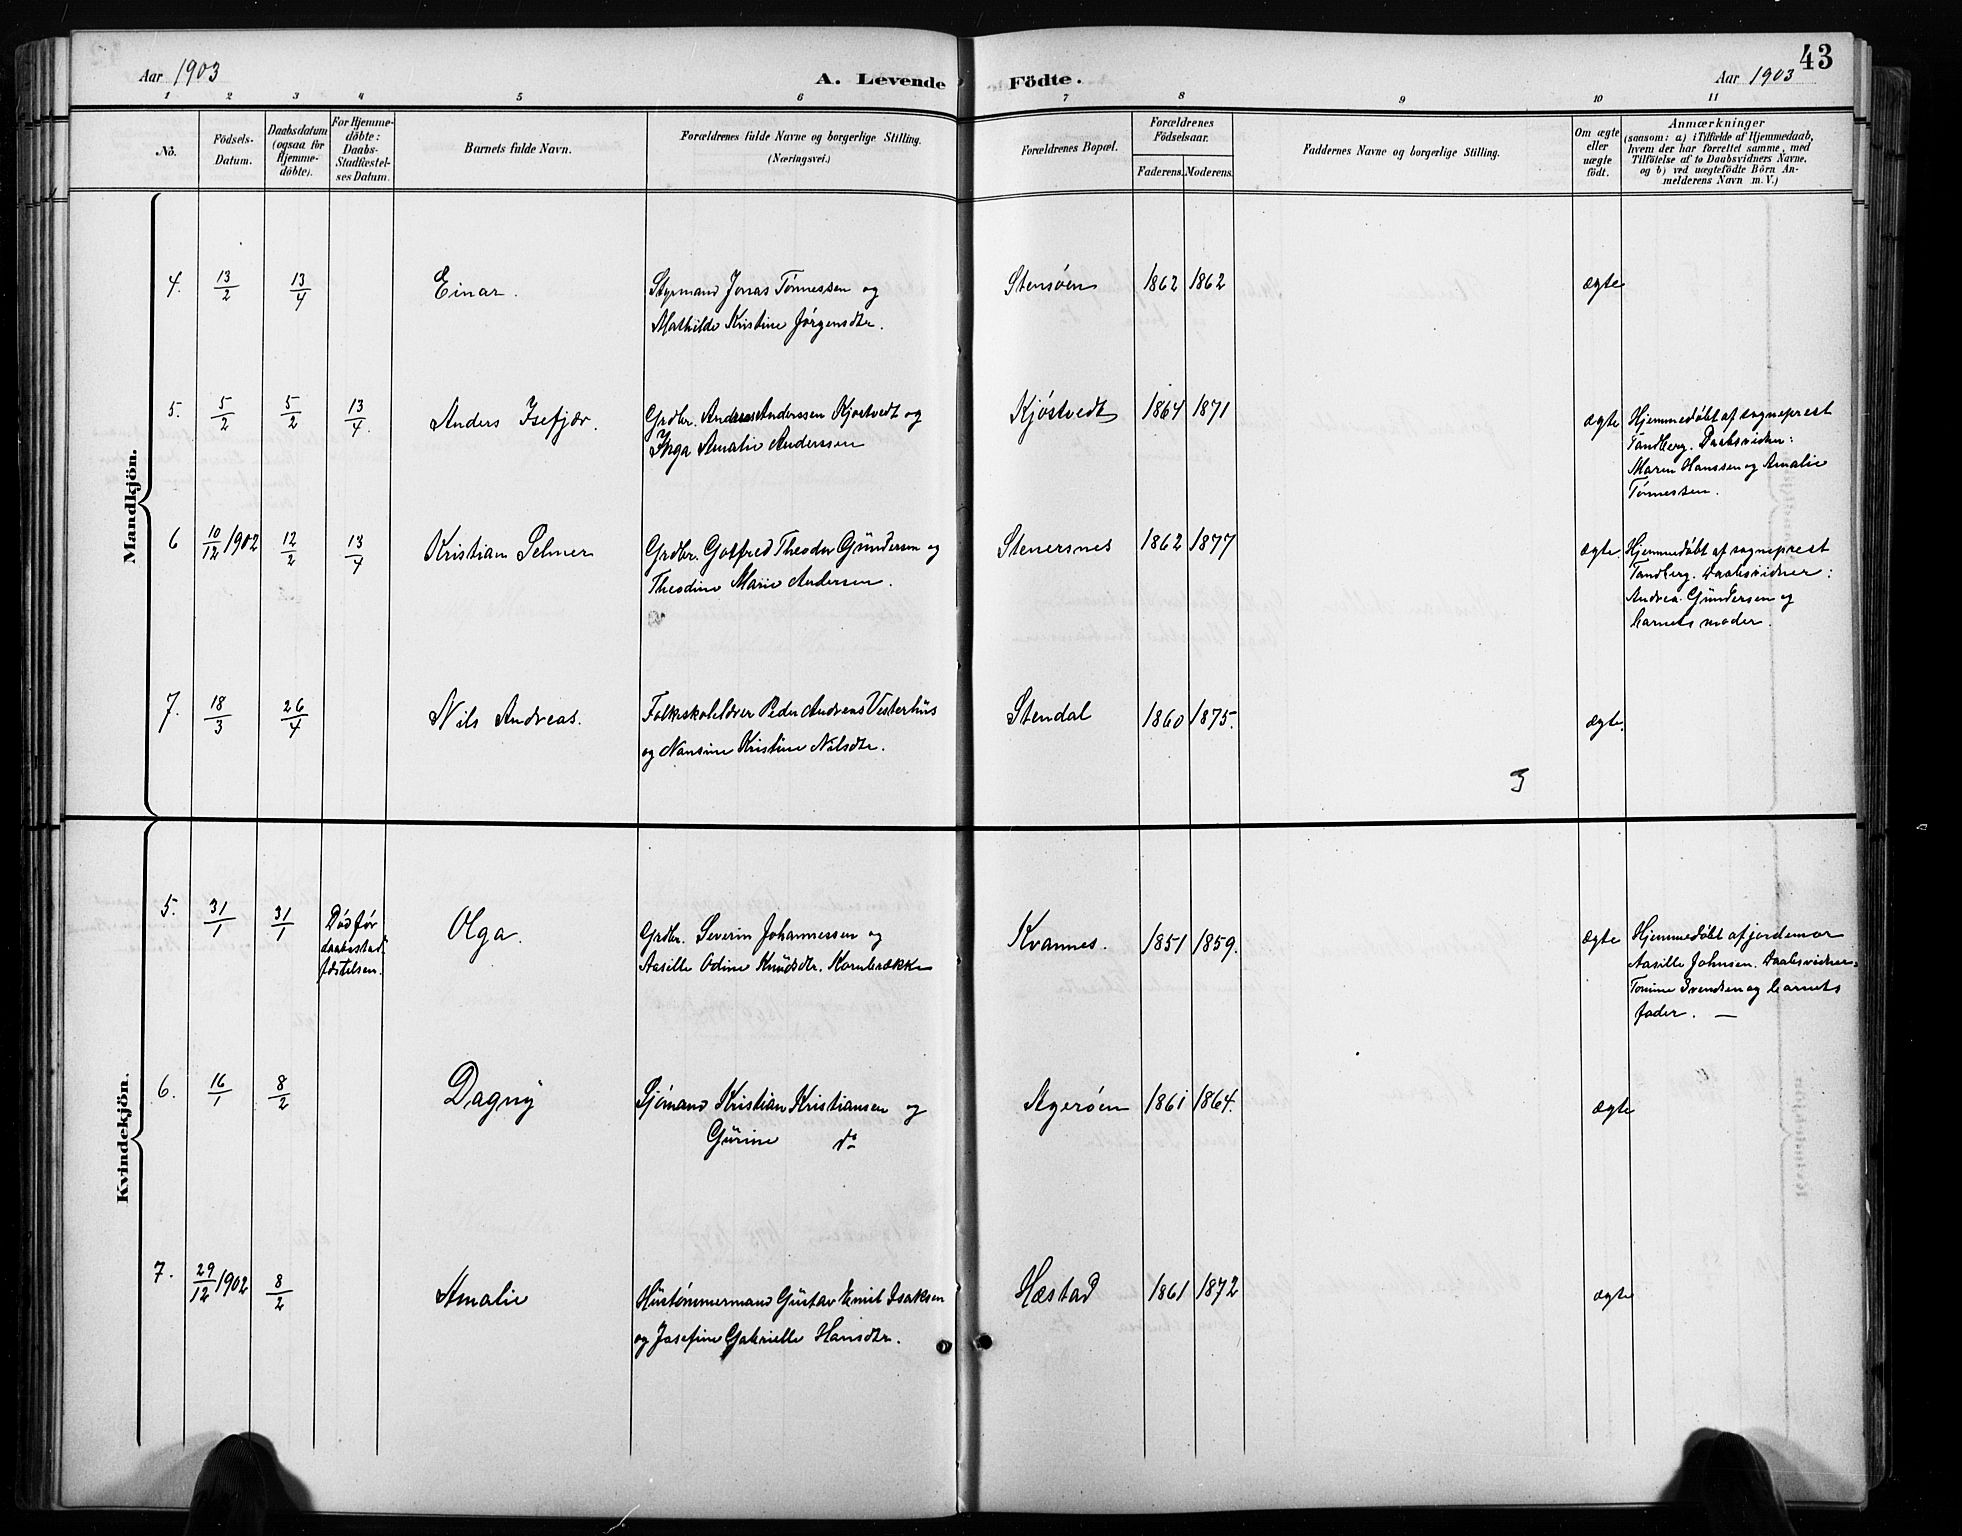 43
Aar 1903
A. Levende Födte.
Aar 1903
1 2 3 4 5 6 7 8 9 10 11
No.
Födsels-
Datum.
Daabsdatum
(ogsaa for
Hjemme-
döbte).
For Hjemme-
döbte:
Daabs-
Stadfæstel-
ses Datum.
Barnets fulde Navn.
Forældrenes fulde Navne og borgerlige Stilling.
(Næringsvei.)
Forældrenes Bopæl.
Forældrenes
Födselsaar.
Faderens. Moderens.
Faddernes Navne og borgerlige Stilling.
Om ægte
eller
uægte
födt.
Anmærkninger
(saasom: a) i Tilfælde af Hjemmedaab,
hvem der har forrettet samme, med
Tilföielse af to Daabsvidners Navne,
og b) ved uægtefödte Börn An-
melderens Navn m. V.)
Mandkjön.
4. 13/2 13/4 Einar. Styrmand Jonas Tønnessen og Stensøen 1862 1862 ægte
Mathilde Kristine Jørgensdtr.
5. 5/2 5/2 13/4 Anders Isefjær. Grdbr. Andreas Anderssen Kjøstvedt og Kjøstvedt 1864 1871 ægte Hjemmedøbt af sogneprest
Inga Amalie Anderssen Tandberg. Daabsvidner:
Maren Hanssen og Amalie
Tønnessen.
6 10/12 1902 12/2 13/4 Kristian Selmer Grdbr. Gotfred Theodor Gündersen og Stenersnes 1862 1877 ægte. Hjemmedøbt af sogneprest
Theodine Marie Andersen. Tandberg. Daabsvidner:
Andrea Gündersen og
barnets moder.
7. 18/3 26/4 Nils Andreas. Folkeskolelærer Peder Andreas Vesterhüs Stendal 1860 1875. ægte.
og Nansine Kristine Nilsdtr.
3
Kvindekjön.
5. 31/1 31/1 Død før Olga. Grdbr. Severin Johannessen og Kvannes. 1851 1859. ægte Hjemmedøbt af jordemor
daabsstad- Aasille Odine Knüdsdtr. Kornbrække Aasille Johnsen. Daabsvidner:
fæstelsen. Tomine Svendsen og barnets
fader. —
6. 16/1 8/2 Dagny Sjømand Kristian Kristiansen og Agerøen 1861 1864. ægte
Gürine do
7. 29/12 1902 8/2 Amalie Hüstømmermand Güstav Emil Isaksen Hæstad 1861 1872 ægte
og Josefine Gabrielle Hansdtr.